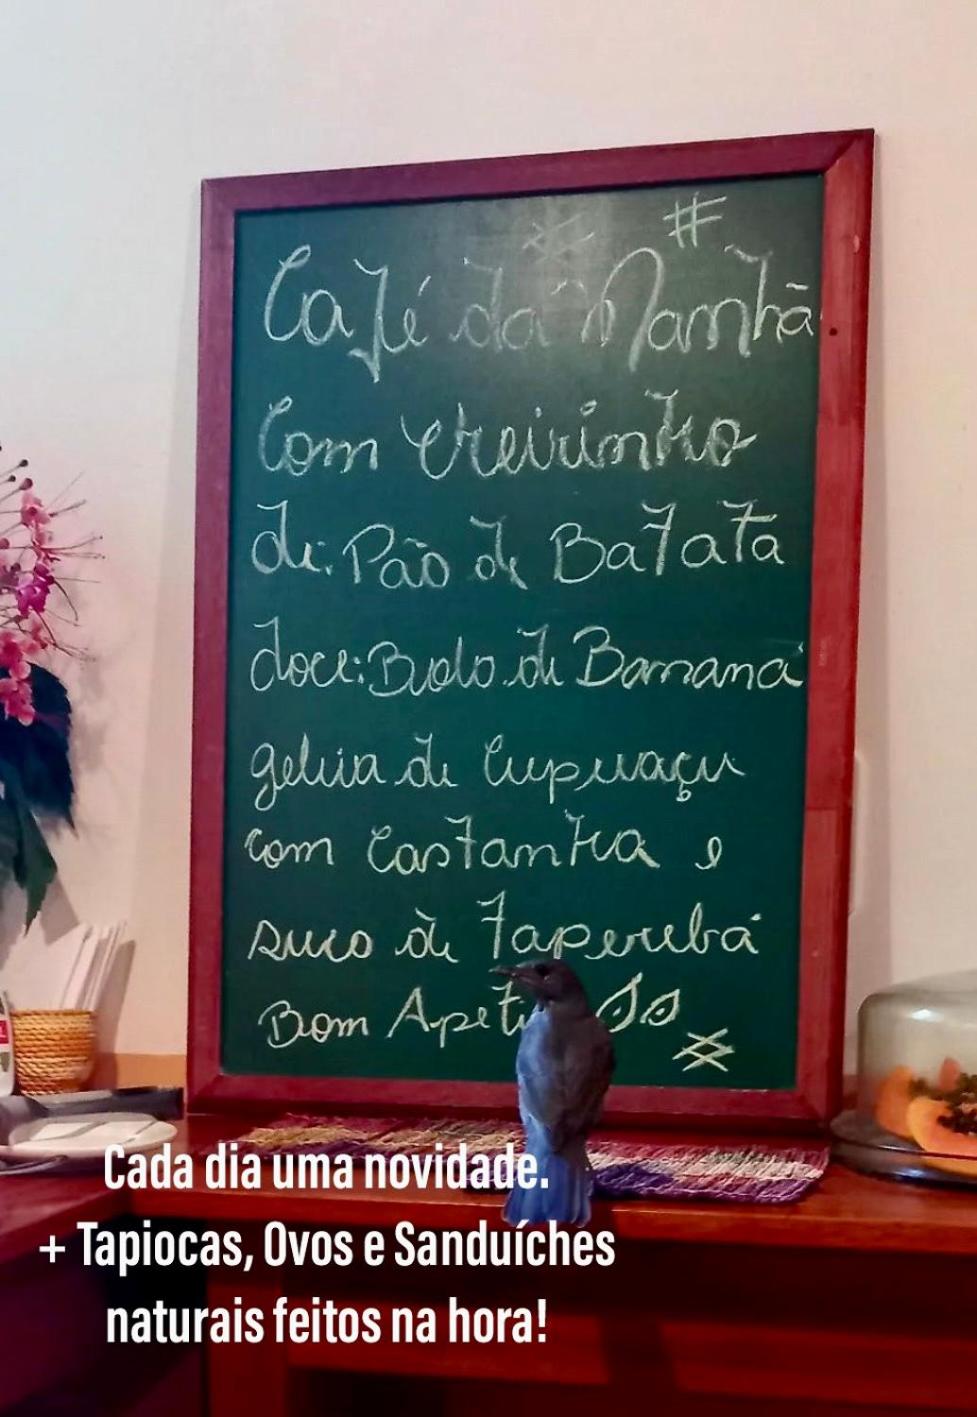 #
Café da Manhã
Com cheirinho
de: Pão de Batata
doce: Bolo de Banana
geleia de Cupuaçu
com Castanha e
suco de Taperebá
Bom
Cada dia uma novidade.
+ Tapiocas, Ovos e Sanduíches
naturais feitos na hora!